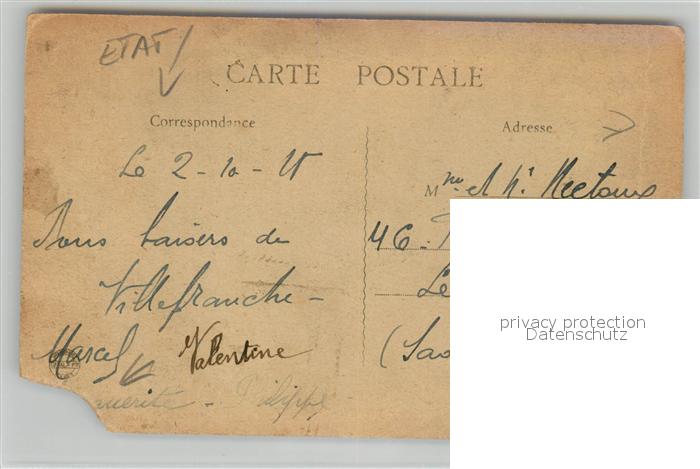 ETAT
CARTE POSTALE
Correspondance
Adresse
Le 2-10-
Bons baisers de
Villefranche -
Marcel Valentine
- Philippe
Mme et Mr
46.
Le
(Sao
privacy protection
Datenschutz